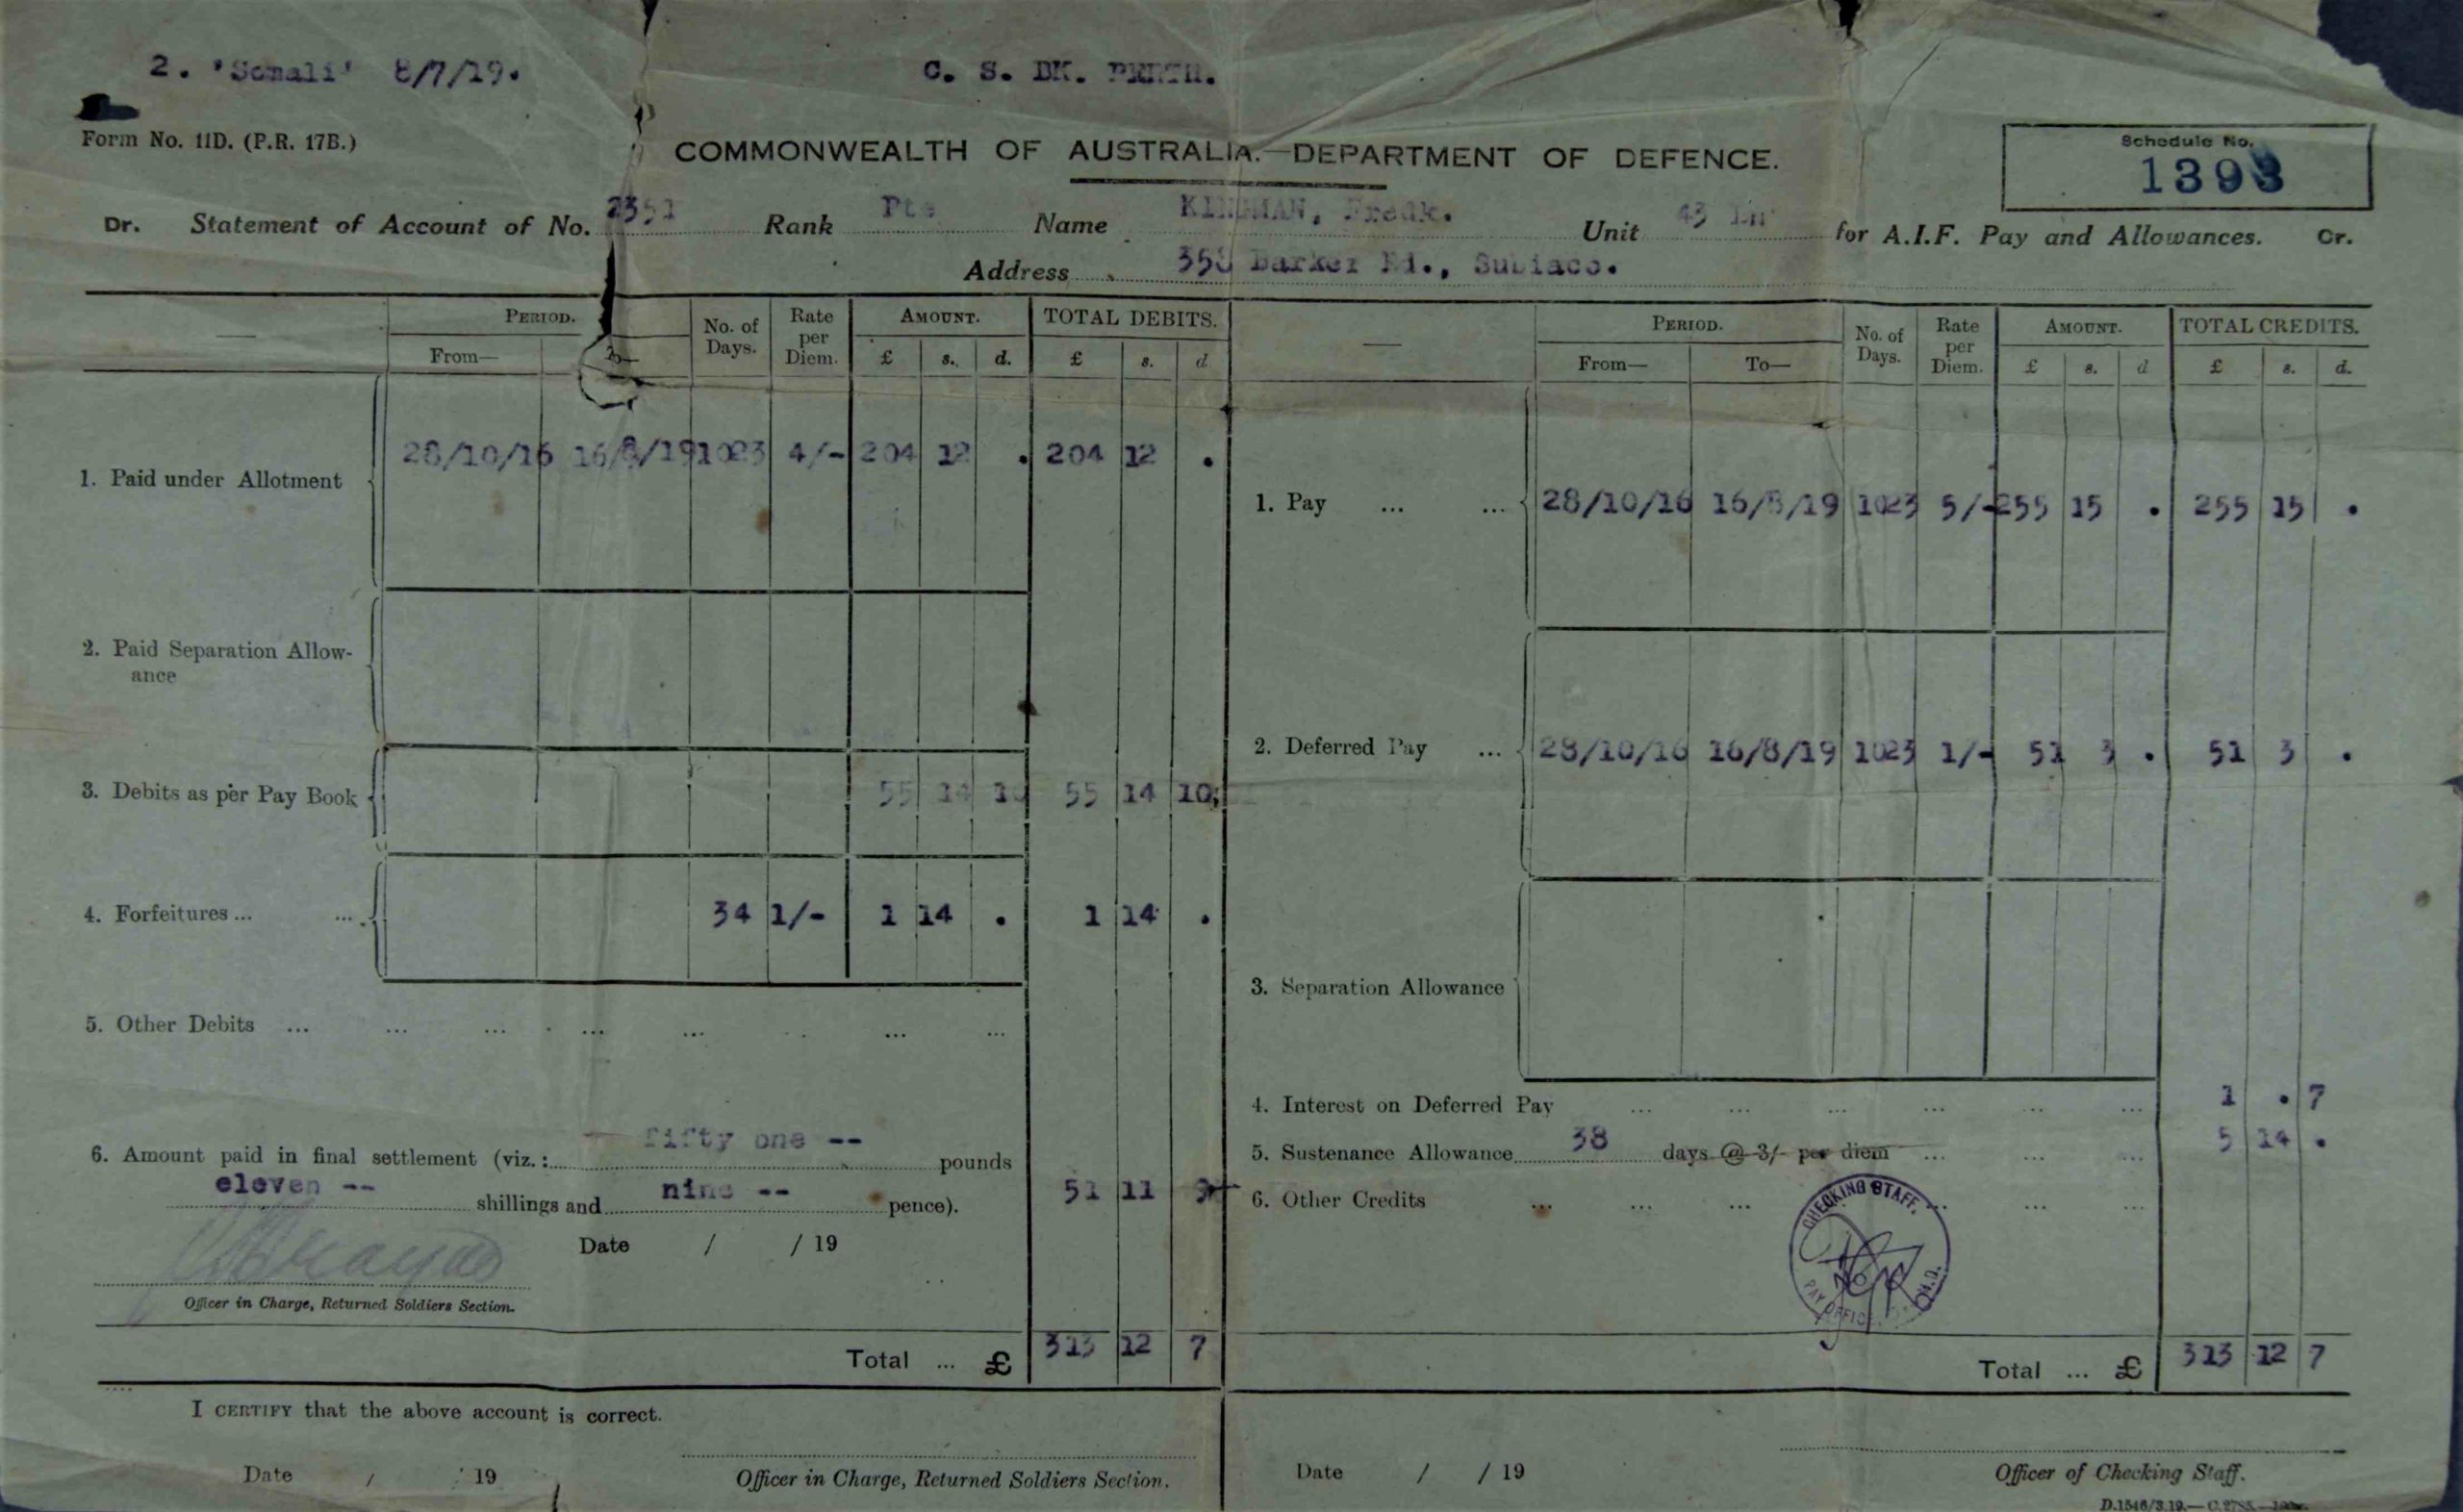 2. 'Somali' 8/7/19.
C. S. DK. PERTH.
Form No. 11D. (P.R. 17B.)
COMMONWEALTH OF AUSTRALIA.—DEPARTMENT OF DEFENCE.
Schedule No.
1393
Dr. Statement of Account of No. 2351 Rank Pte Name KINGMAN, Fredk. Unit 43 for A.I.F. Pay and Allowances. Cr.
Address 358 Barker Rd., Subiaco.
PERIOD. No. of Days. Rate per Diem. AMOUNT. TOTAL DEBITS.
From— To— £ s. d. £ s. d
1. Paid under Allotment 28/10/16 16/8/19 1023 4/- 204 12 . 204 12 .
2. Paid Separation Allow-
ance
3. Debits as per Pay Book 55 14 10 55 14 10
4. Forfeitures ... ... 34 1/- 1 14 . 1 14 .
5. Other Debits ... ... ... ... ... ... ...
6. Amount paid in final settlement (viz.: fifty one -- pounds
eleven -- shillings and nine -- pence). 51 11 9
Date / / 19
Officer in Charge, Returned Soldiers Section.
Total ... £ 313 12 7
I CERTIFY that the above account is correct.
Date / 19
Officer in Charge, Returned Soldiers Section.
PERIOD. No. of Days. Rate per Diem. AMOUNT. TOTAL CREDITS.
From— To— £ s. d £ s. d.
1. Pay ... ... 28/10/16 16/8/19 1023 5/- 255 15 . 255 15 .
2. Deferred Pay ... 28/10/16 16/8/19 1023 1/- 51 3 . 51 3 .
3. Separation Allowance
4. Interest on Deferred Pay ... ... ... ... ... ... 1 . 7
5. Sustenance Allowance 38 days @ 3/- per diem ... ... ... 5 14 .
6. Other Credits ... ... ... ... ... ...
CHECKING STAFF.
PAY OFFICE
Total ... £ 313 12 7
Date / / 19
Officer of Checking Staff.
D.1546/3.19.—